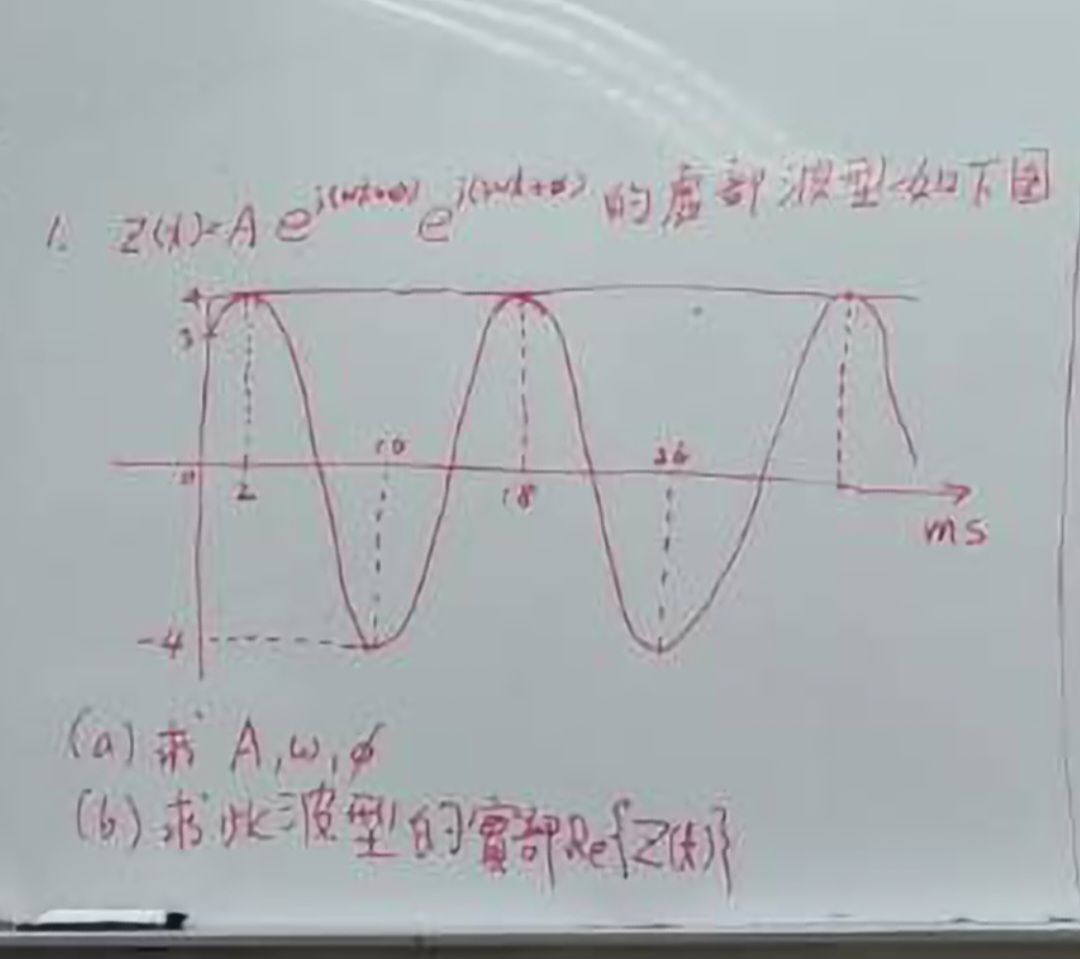 1. Z(t)=A e^{j(ωt+φ)} e^{j(2ωt+φ)} 的虛部波型如下圖
4
3
10
26
0
2
18
ms
-4
(a) 求 A, ω, φ
(b) 求此波型的實部Re{Z(t)}